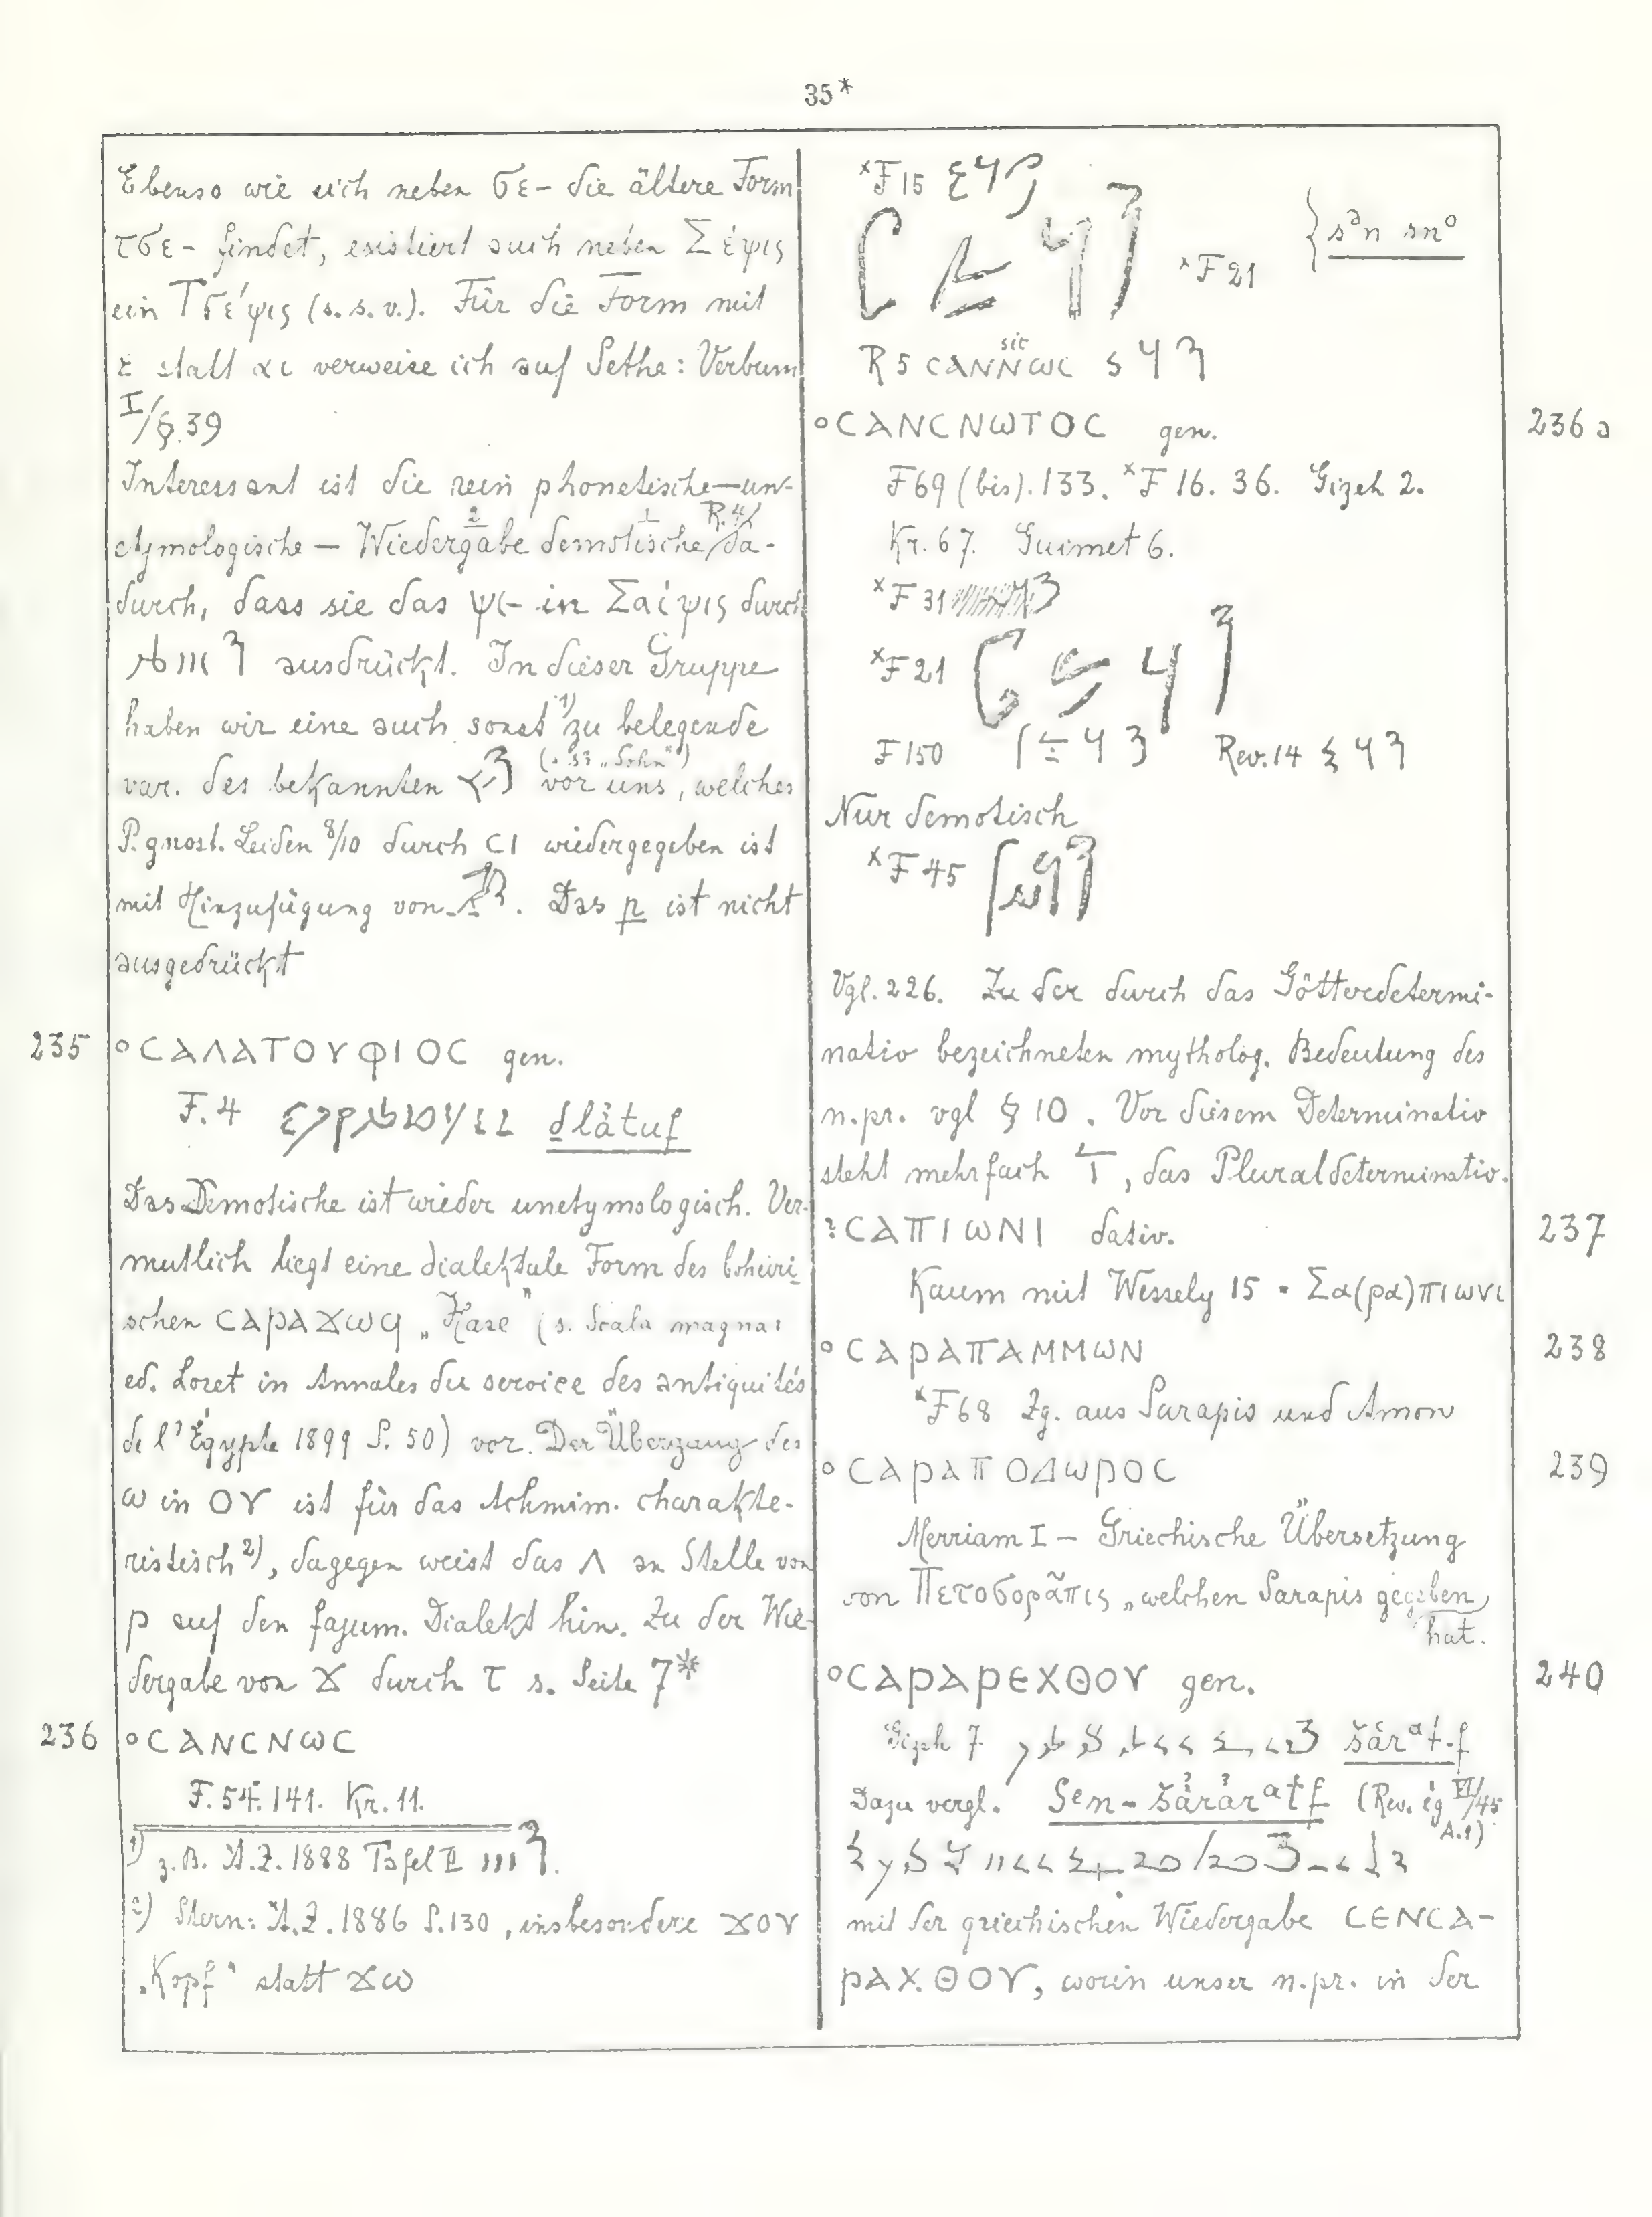 35*
Ebenso wie sich neben σε- die ältere Form
τσε- findet, existiert auch neben Σέψις
ein Τσέψις (s. s. v.). Für die Form mit
ε statt αι verweise ich auf Sethe: Verbum
I/§.39
Interessant ist die rein phonetische – un-
etymologische – Wiedergabe demotische R.4/ da-
durch, dass sie das ψι- in Σαίψις durch
ausdrückt. In dieser Gruppe
haben wir eine auch sonst 1) zu belegende
var. des bekannten (= s3 „Sohn") vor uns, welches
P. gnost. Leiden 8/10 durch CI wiedergegeben ist
mit Hinzufügung von . Das p ist nicht
ausgedrückt
235 °CΑΛΑΤΟΥΦΙΟC gen.
F. 4 dlȧtuf
Das Demotische ist wieder unetymologisch. Ver-
mutlich liegt eine dialektale Form des boheiri-
schen ⲥⲁⲣⲁϫⲱϥ „Hase" (s. Scala magna:
ed. Loret in Annales du service des antiquités
de l'Égypte 1899 S. 50) vor. Der Übergang des
ω in ΟΥ ist für das Achmim. charakte-
ristisch 2), dagegen weist das Λ an Stelle von
ⲣ auf den fajum. Dialekt hin. Zu der Wie-
dergabe von ϫ durch τ s. Seite 7*
236 °CΑΝCΝωC
F. 54. 141. Kr. 11.
1) z. B. Ä.Z. 1888 Tafel II
2) Stern: Ä.Z. 1886 S. 130, insbesondere ϫⲟⲩ
„Kopf" statt ϫⲱ
*F 15
*F 21 } sᵓn sn°
R 5 CΑΝΝωC sic
°CΑΝCΝωΤΟC gen. 236 a
F 69 (bis). 133. *F 16. 36. Gizeh 2.
Kr. 67. Guimet 6.
*F 31
*F 21
F 150 Rev. 14
Nur demotisch
*F 45
Vgl. 226. Zu der durch das Götterdetermi-
nativ bezeichneten mytholog. Bedeutung des
n. pr. vgl § 10. Vor diesem Determinativ
steht mehrfach , das Pluraldeterminativ.
?CΑΠΙωΝΙ dativ. 237
Kaum mit Wessely 15 = Σα(ρα)πιωνι
°CΑΡΑΠΑΜΜωΝ 238
*F 68 Zg. aus Sarapis und Amon
°CΑΡΑΠΟΔωΡΟC 239
Merriam I – Griechische Übersetzung
von Πετοσορᾶπις „welchen Sarapis gegeben
hat.
°CΑΡΑΡΕΧΘΟΥ gen. 240
Gizeh 7 šȧrᵃt-f
Dazu vergl. Sen-šȧrȧrᵃtf (Rev. ég VI/45
A.1)
mit der griechischen Wiedergabe CΕΝCΑ-
ΡΑΧΘΟΥ, worin unser n. pr. in der